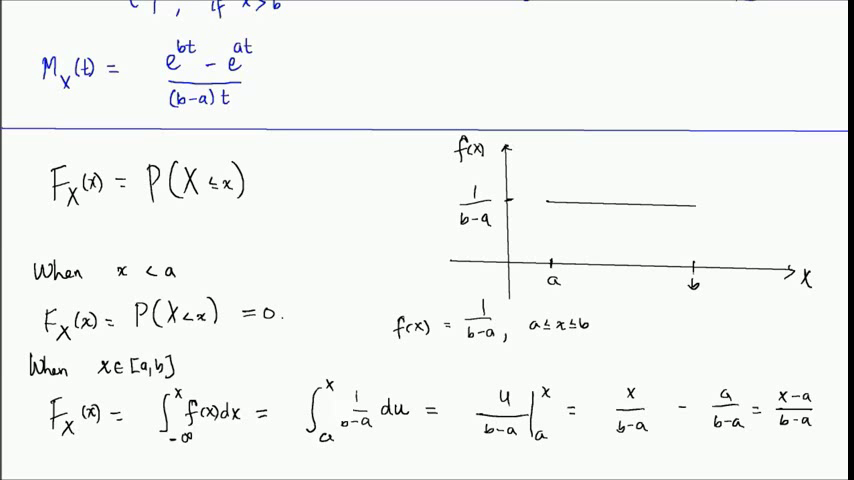 1, if x > b
M_X(t) = (e^{bt} - e^{at}) / ((b-a)t)
F_X(x) = P(X ≤ x)
f(x)
1/(b-a)
a b x
When x < a
F_X(x) = P(X < x) = 0.
f(x) = 1/(b-a), a ≤ x ≤ b
When x ∈ [a,b]
F_X(x) = ∫_{-∞}^{x} f(x)dx = ∫_a^x 1/(b-a) du = u/(b-a) |_a^x = x/(b-a) - a/(b-a) = (x-a)/(b-a)